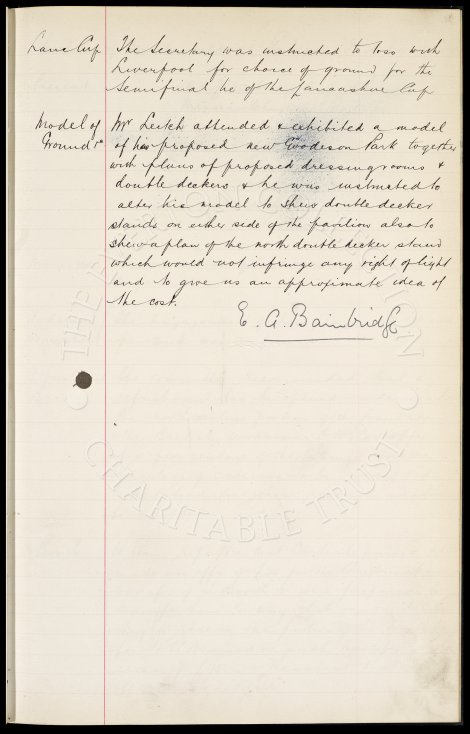 Lanc Cup The Secretary was instructed to toss with
Liverpool for choice of ground for the
Semifinal tie of the Lancashire Cup
Model of Mr Leitch attended & exhibited a model
Ground &c of his proposed new Goodison Park together
with plans of proposed dressingrooms &
double deckers & he was instructed to
alter his model to shew double decker
stands on either side of the pavilion also to
shew a plan of the north double decker stand
which would not infringe any right of light
and to give us an approximate idea of
the cost.
E. A. Bainbridge
CHARITABLE TRUST